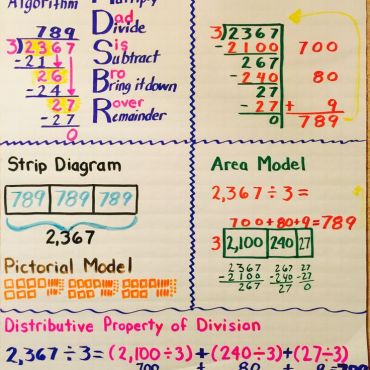 Algorithm
Multiply
Dad
Divide
Sis
Subtract
Bro
Bring it down
Rover
Remainder
789
3 2367
-21
26
-24
27
-27
0
3 2367
-2100 700
267
-240 80
27
-27 + 9
0 789
Strip Diagram
789 789 789
2,367
Pictorial Model
Area Model
2,367÷3=
700+80+9=789
3 2,100 240 27
2367 267 27
-2100 -240 -27
267 27 0
Distributive Property of Division
2,367÷3=(2,100÷3)+(240÷3)+(27÷3)
700 + 80 + 9 =